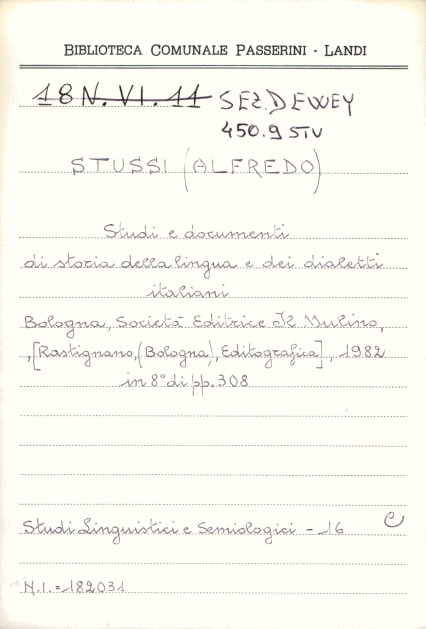 BIBLIOTECA COMUNALE PASSERINI - LANDI
18 N. VI. 11 SEZ. DEWEY
450.9 STU
STUSSI (ALFREDO)
Studi e documenti
di storia della lingua e dei dialetti
italiani
Bologna, Società Editrice Il Mulino,
,[Rastignano, (Bologna), Editografica], 1982
in 8° di pp. 308
Studi Linguistici e Semiologici - 16 C
N.I. = 182031